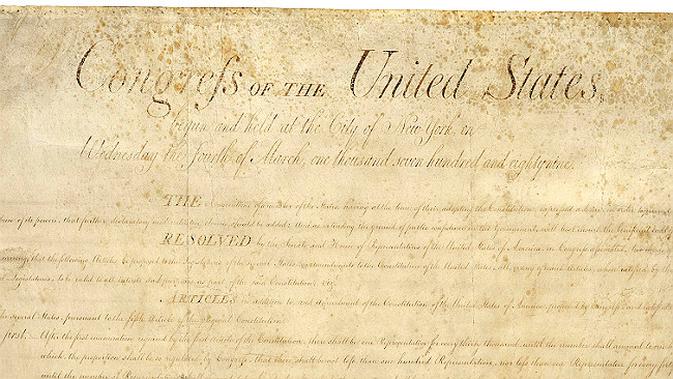 Congress OF THE United States,
begun and held at the City of New York, on
Wednesday the fourth of March, one thousand seven hundred and eighty nine.
THE Conventions of a number of the States, having at the time of their adopting the Constitution, expressed a desire, in order to prevent
of its powers, that further declaratory and restrictive clauses should be added: And as extending the ground of public confidence in the Government, will best ensure the beneficent ends of
RESOLVED by the Senate and House of Representatives of the United States of America, in Congress assembled, two
concurring, that the following Articles be proposed to the Legislatures of the several States, as amendments to the Constitution of the United States, all, or any of which Articles, when ratified by
Legislatures, to be valid to all intents and purposes, as part of the said Constitution; viz.
ARTICLES in addition to, and Amendment of the Constitution of the United States of America, proposed by Congress, and
the several States, pursuant to the fifth Article of the original Constitution.
first... After the first enumeration required by the first Article of the Constitution, there shall be one Representative for every thirty thousand, until the number shall amount to
which, the proportion shall be so regulated by Congress, that there shall be not less than one hundred Representatives, nor less than one Representative for every forty
until the number of Representatives